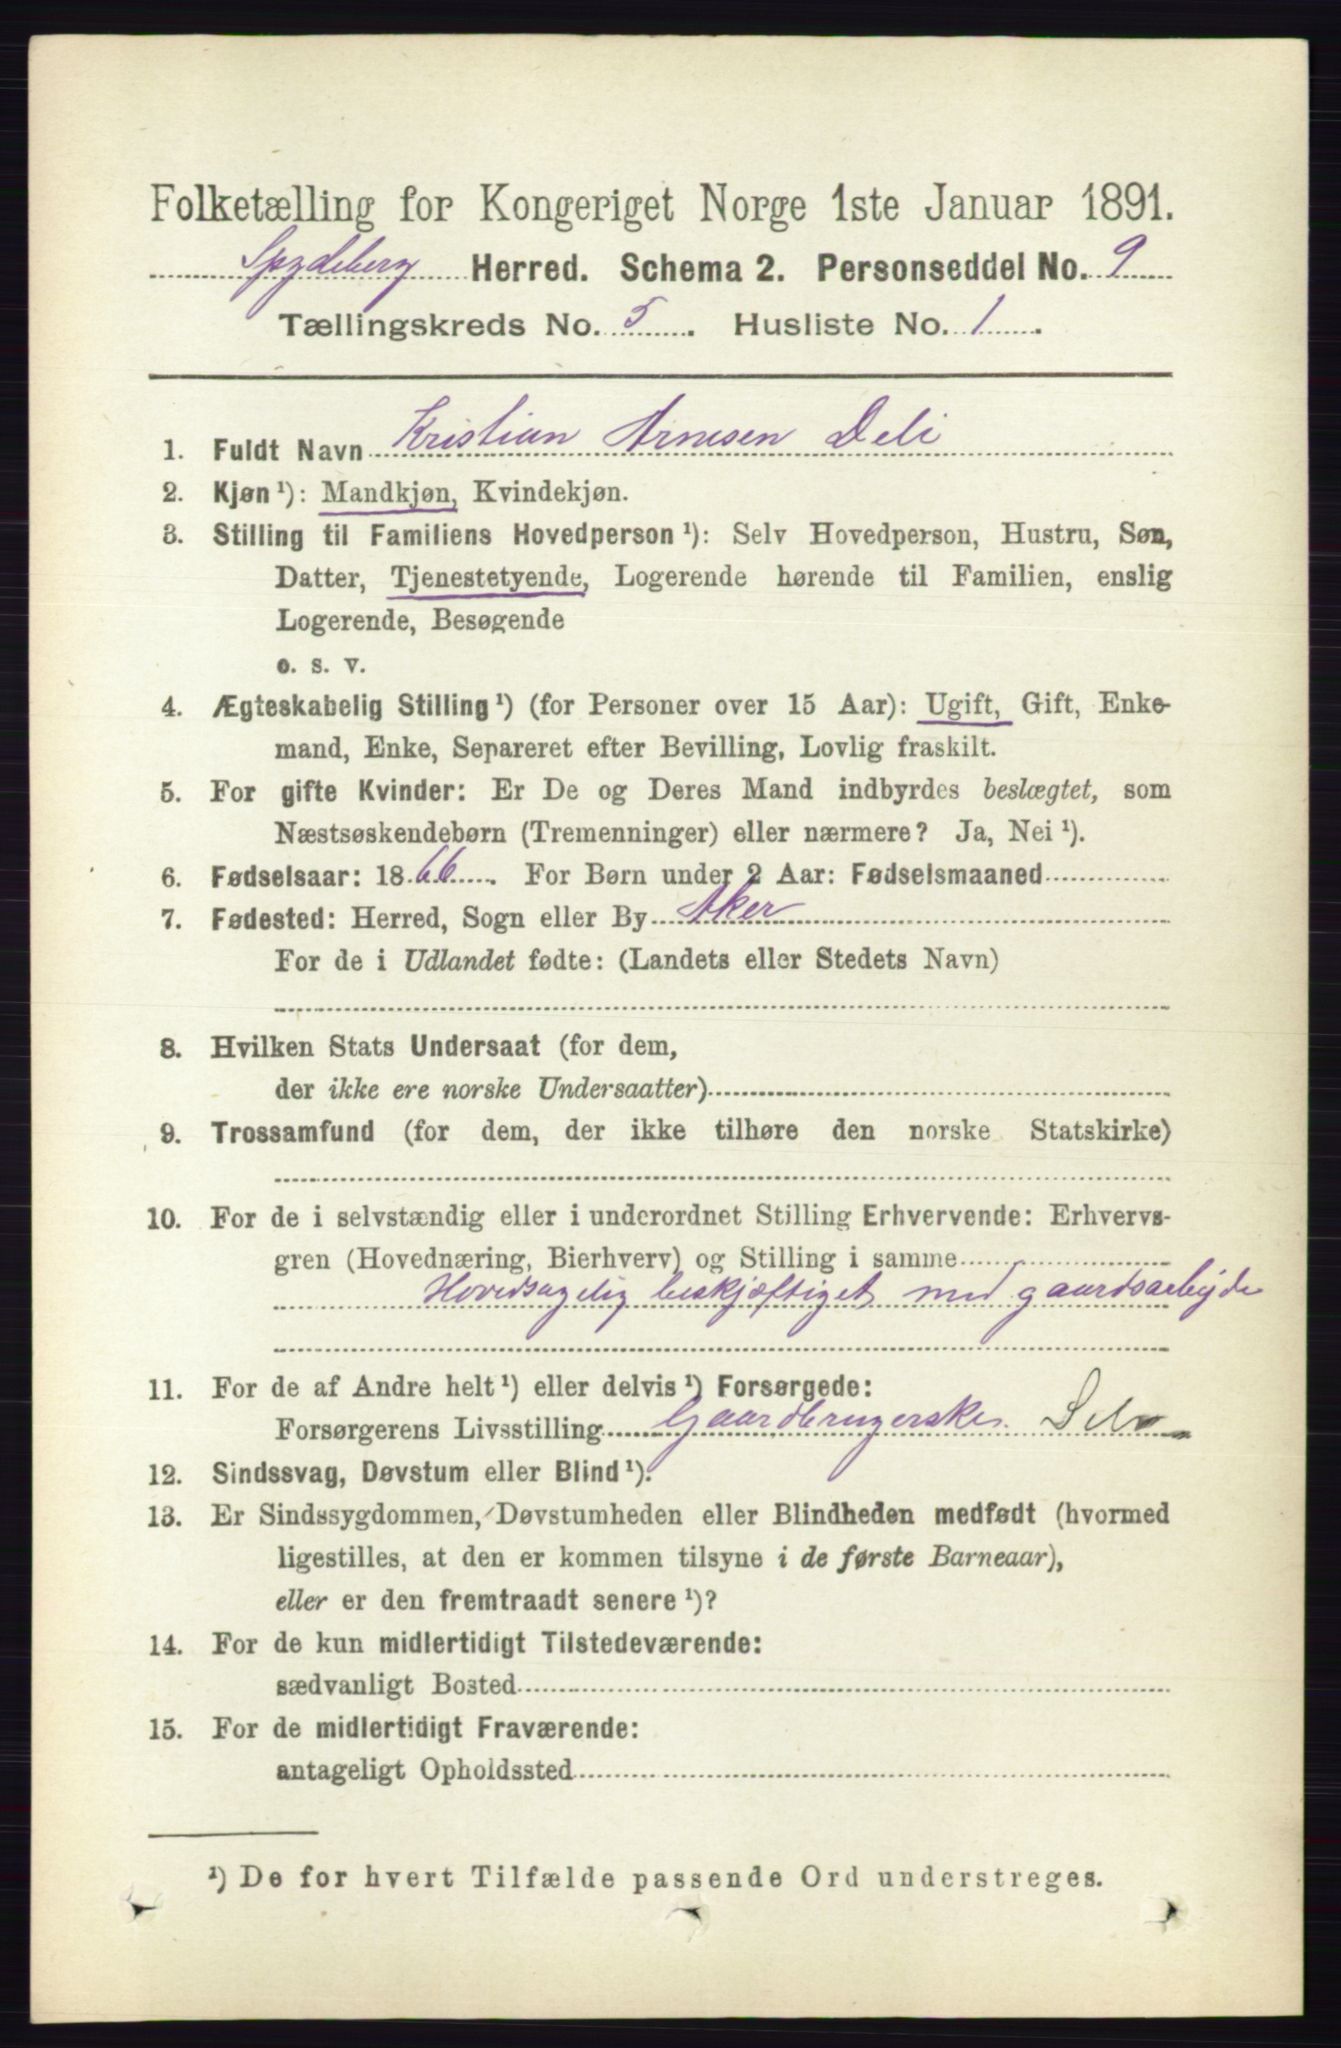 Folketælling for Kongeriget Norge 1ste Januar 1891.
Spydeberg Herred. Schema 2. Personseddel No. 9
Tællingskreds No. 5. Husliste No. 1.
1. Fuldt Navn Kristian Arnesen Deli
2. Kjøn ¹): Mandkjøn, Kvindekjøn.
3. Stilling til Familiens Hovedperson ¹): Selv Hovedperson, Hustru, Søn,
Datter, Tjenestetyende, Logerende hørende til Familien, enslig
Logerende, Besøgende
o. s. v.
4. Ægteskabelig Stilling ¹) (for Personer over 15 Aar): Ugift, Gift, Enke-
mand, Enke, Separeret efter Bevilling, Lovlig fraskilt.
5. For gifte Kvinder: Er De og Deres Mand indbyrdes beslægtet, som
Næstsøskendebørn (Tremenninger) eller nærmere? Ja, Nei ¹).
6. Fødselsaar: 1866. For Børn under 2 Aar: Fødselsmaaned
7. Fødested: Herred, Sogn eller By Aker
For de i Udlandet fødte: (Landets eller Stedets Navn)
8. Hvilken Stats Undersaat (for dem,
der ikke ere norske Undersaatter)
9. Trossamfund (for dem, der ikke tilhøre den norske Statskirke)
10. For de i selvstændig eller i underordnet Stilling Erhvervende: Erhvervs-
gren (Hovednæring, Bierhverv) og Stilling i samme
Hovedsagelig beskjæftiget med gaardsarbejde
11. For de af Andre helt ¹) eller delvis ¹) Forsørgede:
Forsørgerens Livsstilling Gaardbrugerske. Selv
12. Sindssvag, Døvstum eller Blind ¹).
13. Er Sindssygdommen, Døvstumheden eller Blindheden medfødt (hvormed
ligestilles, at den er kommen tilsyne i de første Barneaar),
eller er den fremtraadt senere ¹)?
14. For de kun midlertidigt Tilstedeværende:
sædvanligt Bosted
15. For de midlertidigt Fraværende:
antageligt Opholdssted
¹) De for hvert Tilfælde passende Ord understreges.